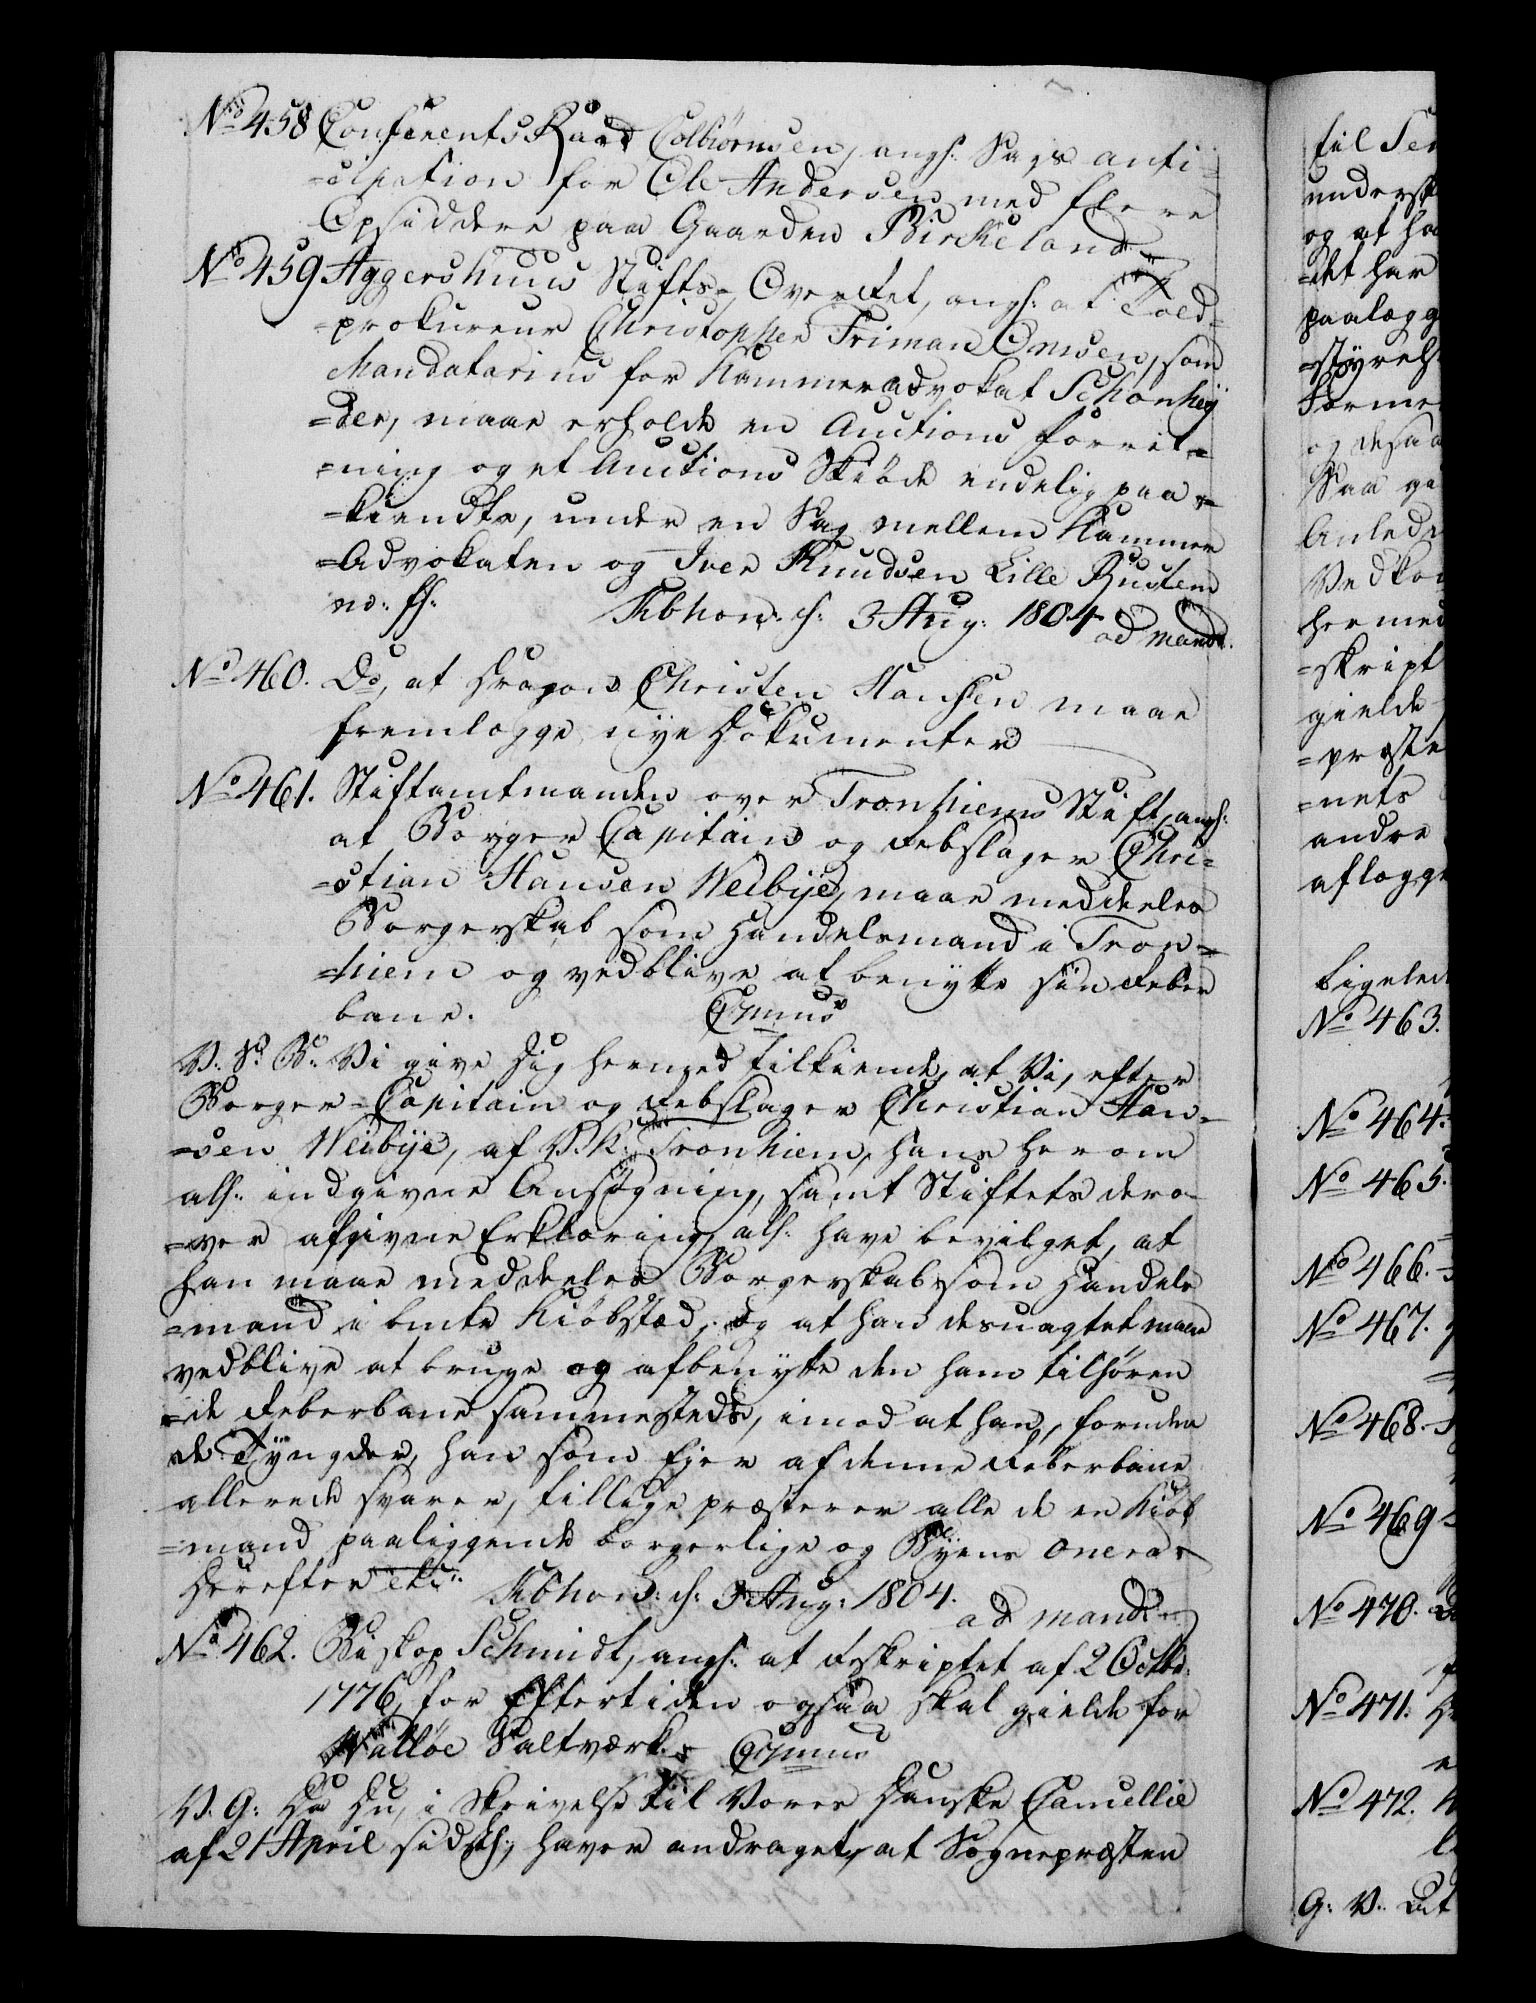 No 458 Conferents Raad Colbiørnsen, angs: Sags anti-
-cipation for Ole Andersen med flere
Opsiddere paa Gaarden Birkeland.
No 459 Aggershuus Stifts-Overret, angs: at
-prokureur Christopher Friman Omsen, som
Mandatarius for Kammeradvokat Schønhey
-der, maae erholde en Auctions forret-
-ning og et Auctions Skiøde endelig paa-
-kiendte, under en Sag mellem Kammer
-Advokaten og Iver Knudsen Lille Rusten
Kbhavn d: 3 Aug: 1804 ad mand:
No 460. Do, at Dragon Christen Hansen maae
fremlægge nye Dokumenter
No 461. Stiftamtmanden over Tronhiems Stift, angs:
at Borger Capitain og Rebslager Chri-
-stian Hansen Weibye, maae meddeeles
Borgerskab som Handelsmand i Tron-
-hiem og vedblive at benytte sin Reber
bane. Germus
V. S. B. Vi give Dig hermed tilkiende, at Vi, efter
Borger-Capitain og Rebslager Christian Han-
-sen Weibye, af V. K. Tronhiem, hans herom
alh: indgivne Ansøgning, samt Stiftets dero-
-ver afgivne Erklæring alh: have bevilget, at
han maae meddeeles Borgerskab som Handels
-mand i bemte Kiøbstæd, og at han desuagtet maae
vedblive at bruge og afbenytte den ham tilhøren
-de Reberbane sammesteds, imod at han, foruden
de Tyngder, han som Ejer af denne Reberbane
allerede svarer, tillige præsterer alle de en Kiøb
-mand paaliggende borgerlige og Byens onera-
Herefter etc: Kbhavn d: 3 Aug: 1804. ad mand:
No 462. Biskop Schmidt, angs: at Reskriptet af 2 Octbr:
1776, for Eftertiden ogsaa skal gielde for
Walløe Saltværk- Germus
V. G: Da Du, i Skrivelse til Vores Danske Cancellie
af 21 April sidstl:, haver andraget, at Sognepræsten
til Se
underst
og at ha
-det har
paalægg
-styrels
og desaa
Saa gi
Anledn
Vedko
hermed
-skript
gielde
-præste
-nets
andre
aflægge
Ligeled
No 463.
No 464.
No 465.
No 466.
No 467.
No 468.
No 469
No 470.
No 471.
No 472.
G: V. Dit